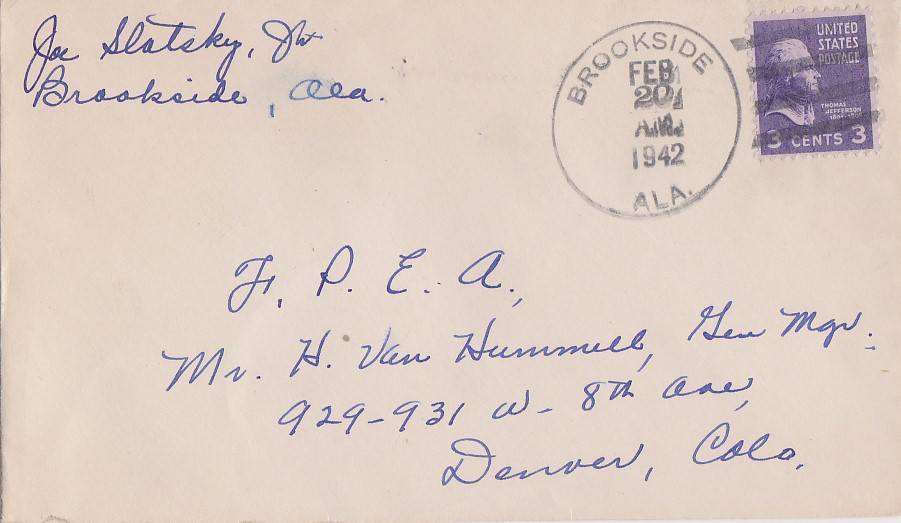 Joe Slatsky, Jr
Brookside, Ala.
BROOKSIDE
FEB
20
AM
1942
ALA.
UNITED
STATES
POSTAGE
THOMAS
JEFFERSON
3 CENTS 3
F. P. E. A.,
Mr. H. Van Hummell, Gen Mgr.
929-931 W- 8th Ave,
Denver, Colo.